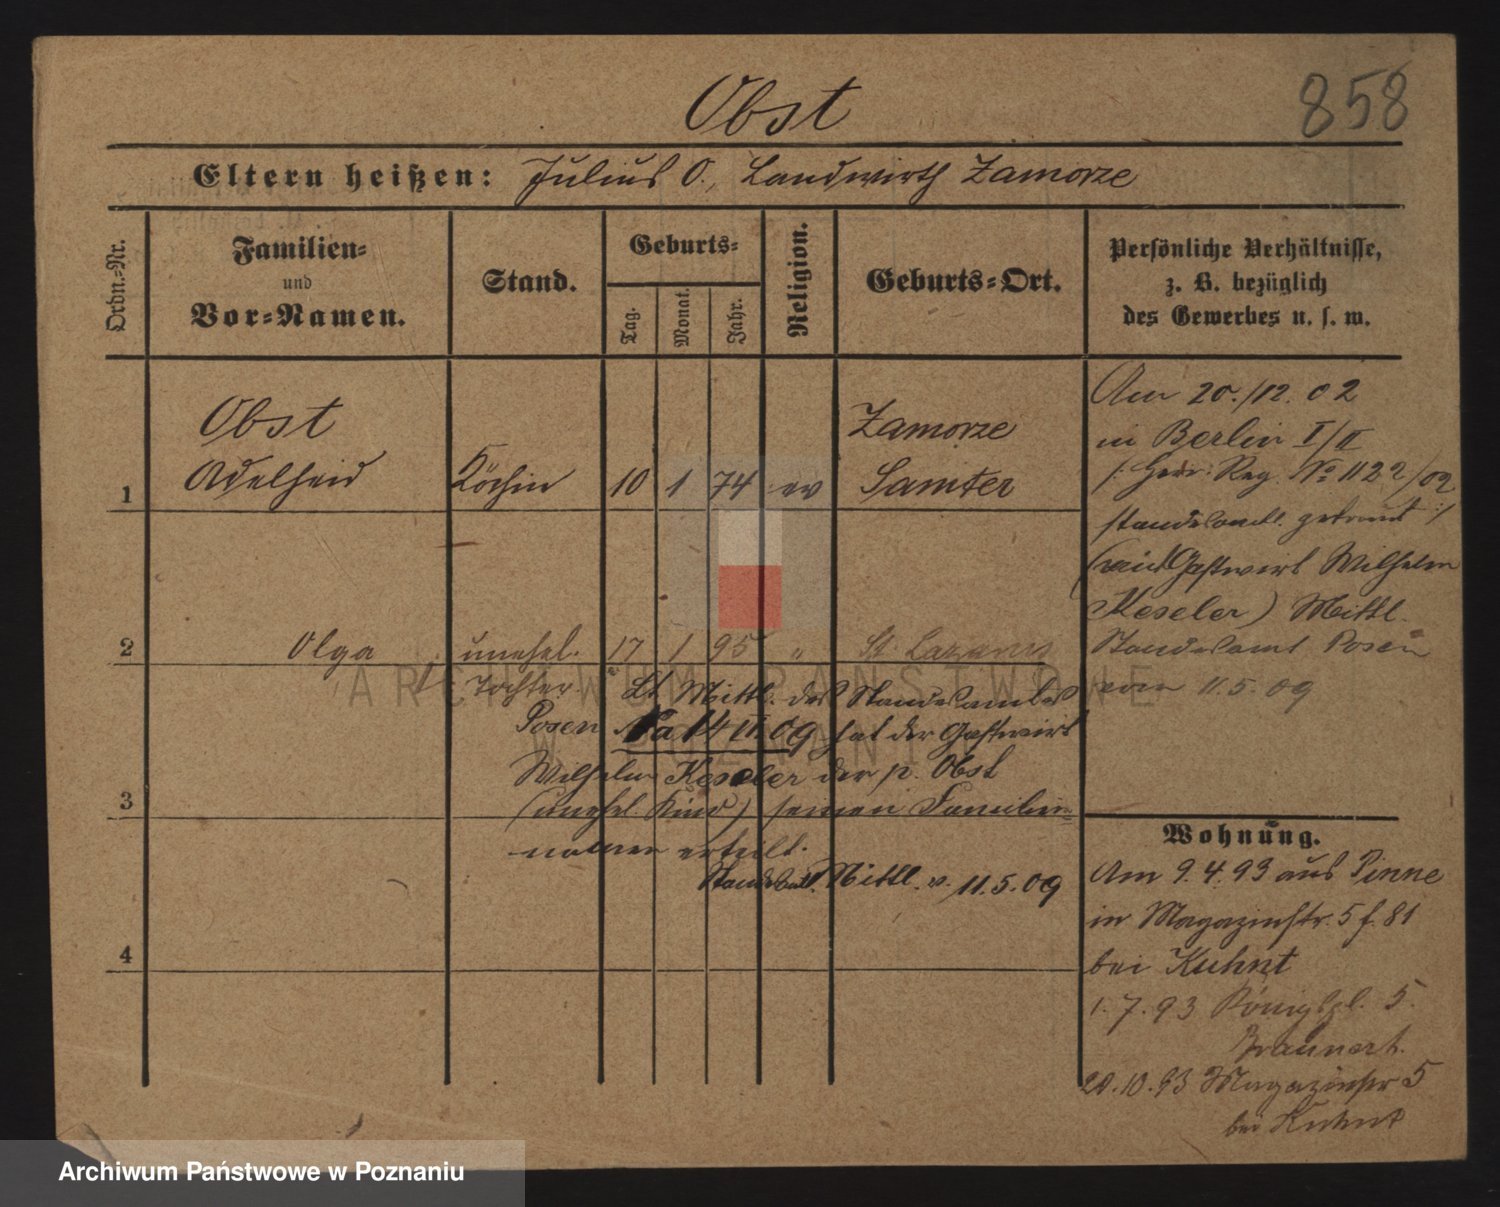 Obst
858
Eltern heißen: Julius O., Landwirth Zamorze
Ordn.-Nr.
Familien-
und
Vor-Namen.
Stand.
Geburts-
Tag.
Monat.
Jahr.
Religion.
Geburts-Ort.
Persönliche Verhältnisse,
z. B. bezüglich
des Gewerbes u. s. w.
Obst
Adelheid
1
Köchin
10
1
74
ev
Zamorze
Samter
Am 20./12. 02
in Berlin I/II
Reg. No 1122/02
standesamtl. getraut :/
(mit Gastwirt Wilhelm
Keseler) Mittl.
Standesamt Posen
vom 11.5.09
2
Olga
unehel.
Tochter
17
1
95
"
St. Lazarus
Lt. Mittl. des Standesamtes
Posen 09 hat der Gastwirt
Wilhelm Keseler der p. Obst
(unehel. Kind) seinen Familien-
namen erteilt.
Mittl. v. 11.5.09
3
4
Wohnung.
Am 9.4.93 aus Pinne
in Magazinstr. 5 f. 81
bei Kuhnt
1.7.93 Königspl. 5.
Braunert.
20.10.93 Magazinstr 5
bei Kuhnt
ARCHIWUM PAŃSTWOWE
W POZNANIU
Archiwum Państwowe w Poznaniu